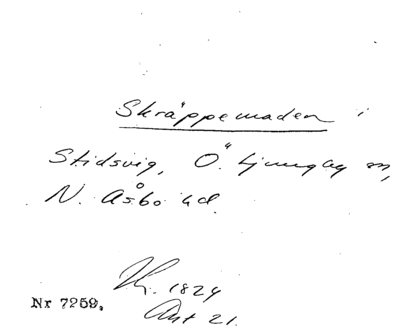 Skräppemaden i
Stidsvig, Ö. Ljungby sn,
N. Åsbo hd.
Nr 7259.
1824
Akt 21.